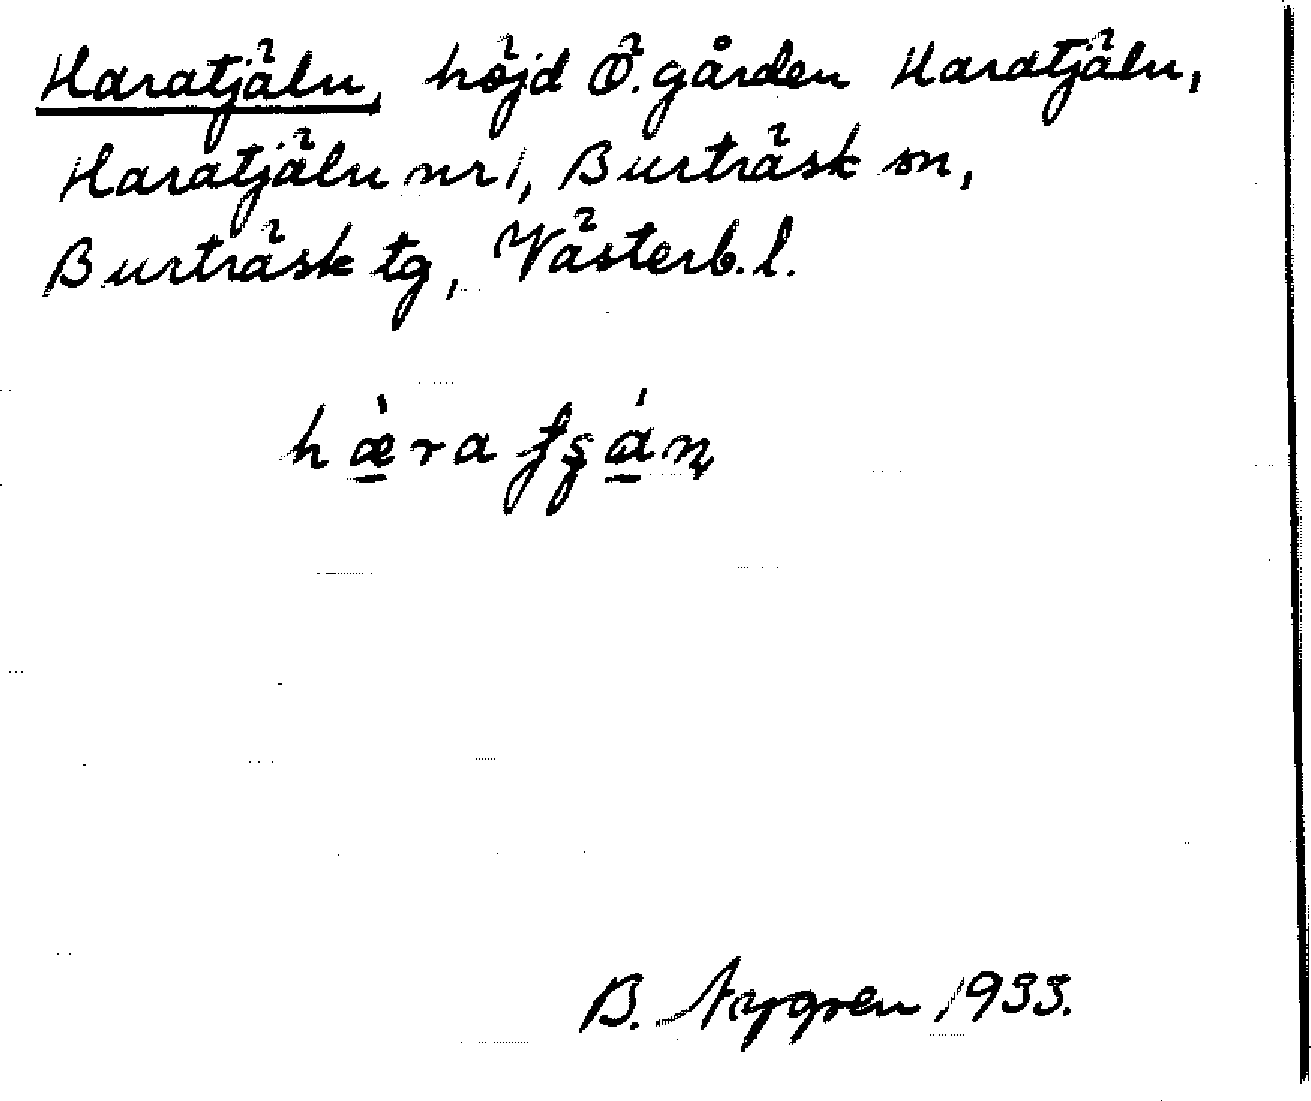 Haratjäln, höjd Ö. gården Haratjäln,
Haratjäln nr 1, Burträsk sn,
Burträsk tg, Västerb. l.
B. Nygren 1933.